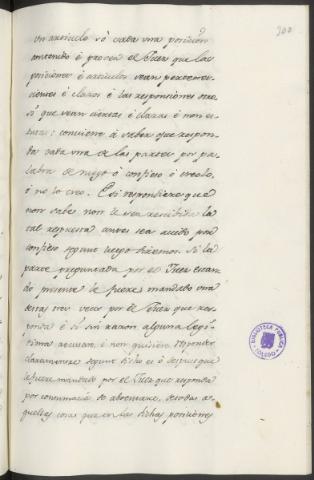 300
un articulo ó cada una posicion
contenido é provea el Juez que las
posiciones é articulos sean pertenes-
cientes é claros é las responsiones otro-
sí que sean ciertas é claras é non es-
curas: conviene á saber que respon-
da cada una de las partes por pa-
labra de niego ó confieso ó creolo
ó no lo creo. E si respondiere que
non sabe non le sea rescibida la
tal respuesta antes sea avido por
confieso segunt luego dirémos. Si la
parte preguntada por el Juez estan-
do presente le fuere mandado una
tres veces por el Juez que res-
ponda é si sin razon alguna legí-
tima non quisiere responder
claramente segunt dicho es ó despues que
le fuere mandado por el Juez que responda
por contumacia se absentare, de todas a-
quellas cosas que en las dichas posiciones
BIBLIOTECA PUBLICA
TOLEDO